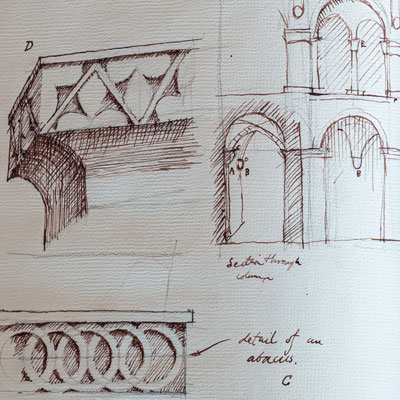 D
E
A
B
B
Section through
column
detail of an
abacus.
C